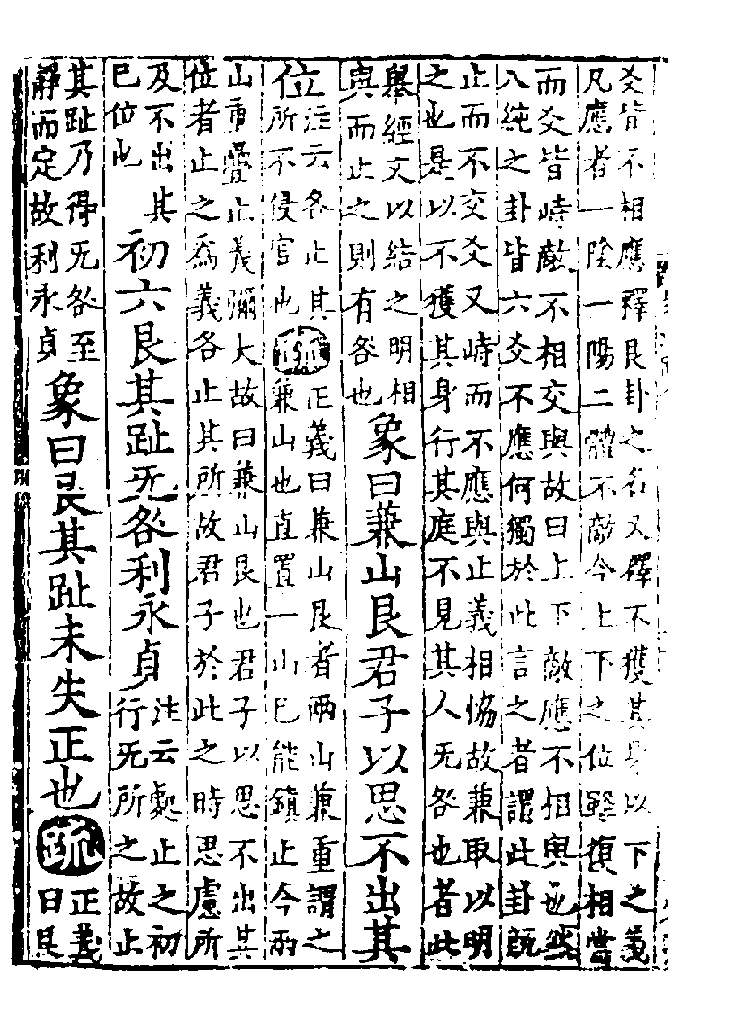 爻皆不相應釋艮卦之名又釋不獲其身以下之義
凡應者一陰一陽二體不敵今上下之位雖復相當
而爻皆峙敵不相交與故曰上下敵應不相與也然
八純之卦皆六爻不應何獨於此言之者謂此卦既
止而不交爻又峙而不應與止義相協故兼取以明
之也是以不獲其身行其庭不見其人无咎也者此
舉經文以結之明相
與而止之則有咎也
象曰兼山艮君子以思不出其
位
注云各止其
所不侵官也
疏
正義曰兼山艮者兩山兼重謂之
兼山也直置一山已能鎮止今兩
山重疊止義彌大故曰兼山艮也君子以思不出其
位者止之爲義各止其所故君子於此之時思慮所
及不出其
已位也
初六艮其趾无咎利永貞
注云處止之初
行无所之故止
其趾乃得无咎至
靜而定故利永貞
象曰艮其趾未失正也
疏
正義
曰艮